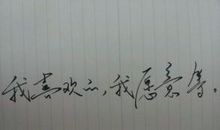 我喜欢的，我愿意等。